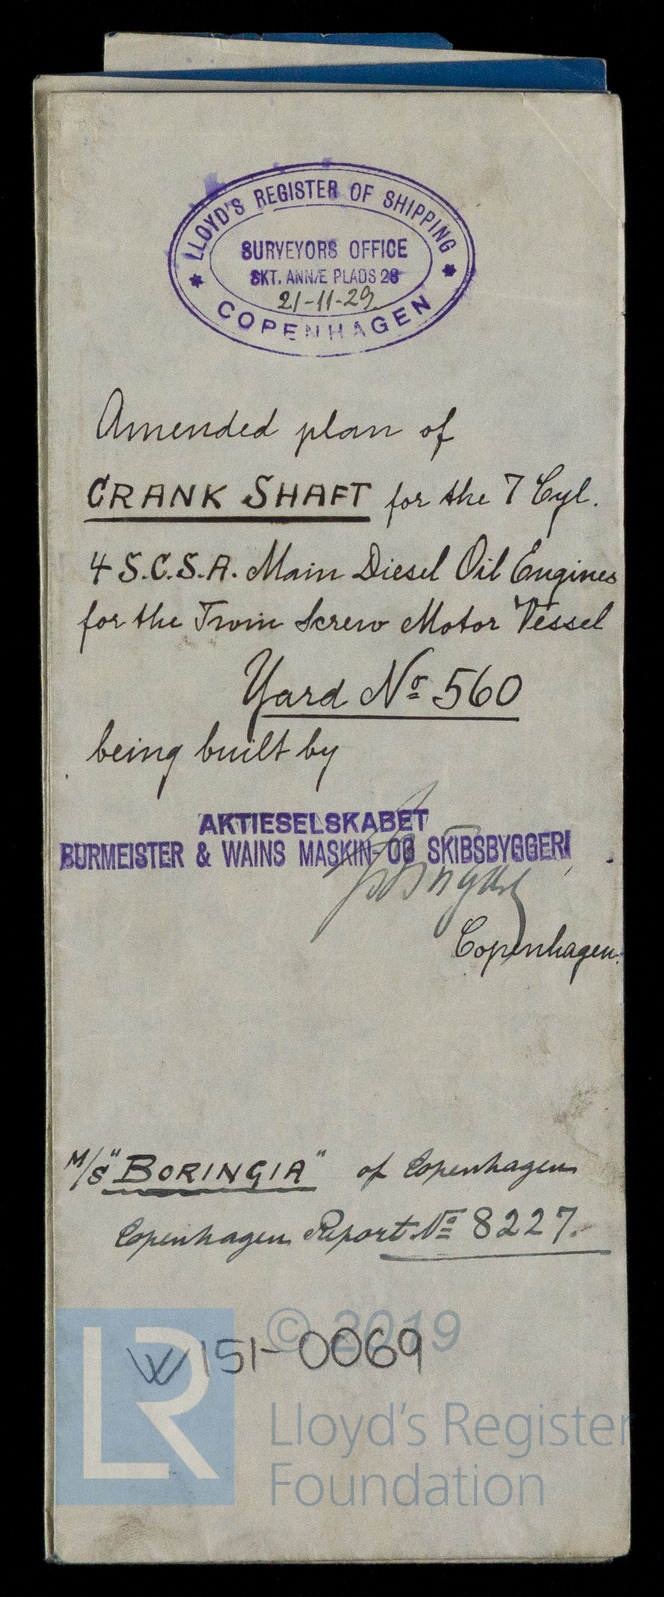 LLOYD'S REGISTER OF SHIPPING
SURVEYORS OFFICE
SKT. ANNÆ PLADS 26
21-11-29
COPENHAGEN
Amended plan of
CRANK SHAFT for the 7 Cyl.
4 S.C.S.A. Main Diesel Oil Engines
for the Twin Screw Motor Vessel
Yard No 560
being built by
AKTIESELSKABET
BURMEISTER & WAINS MASKIN- OG SKIBSBYGGERI
Copenhagen.
M/S "BORINGIA" of Copenhagen
Copenhagen Report No 8227.
© 2019
W151-0069
LR
Lloyd's Register
Foundation